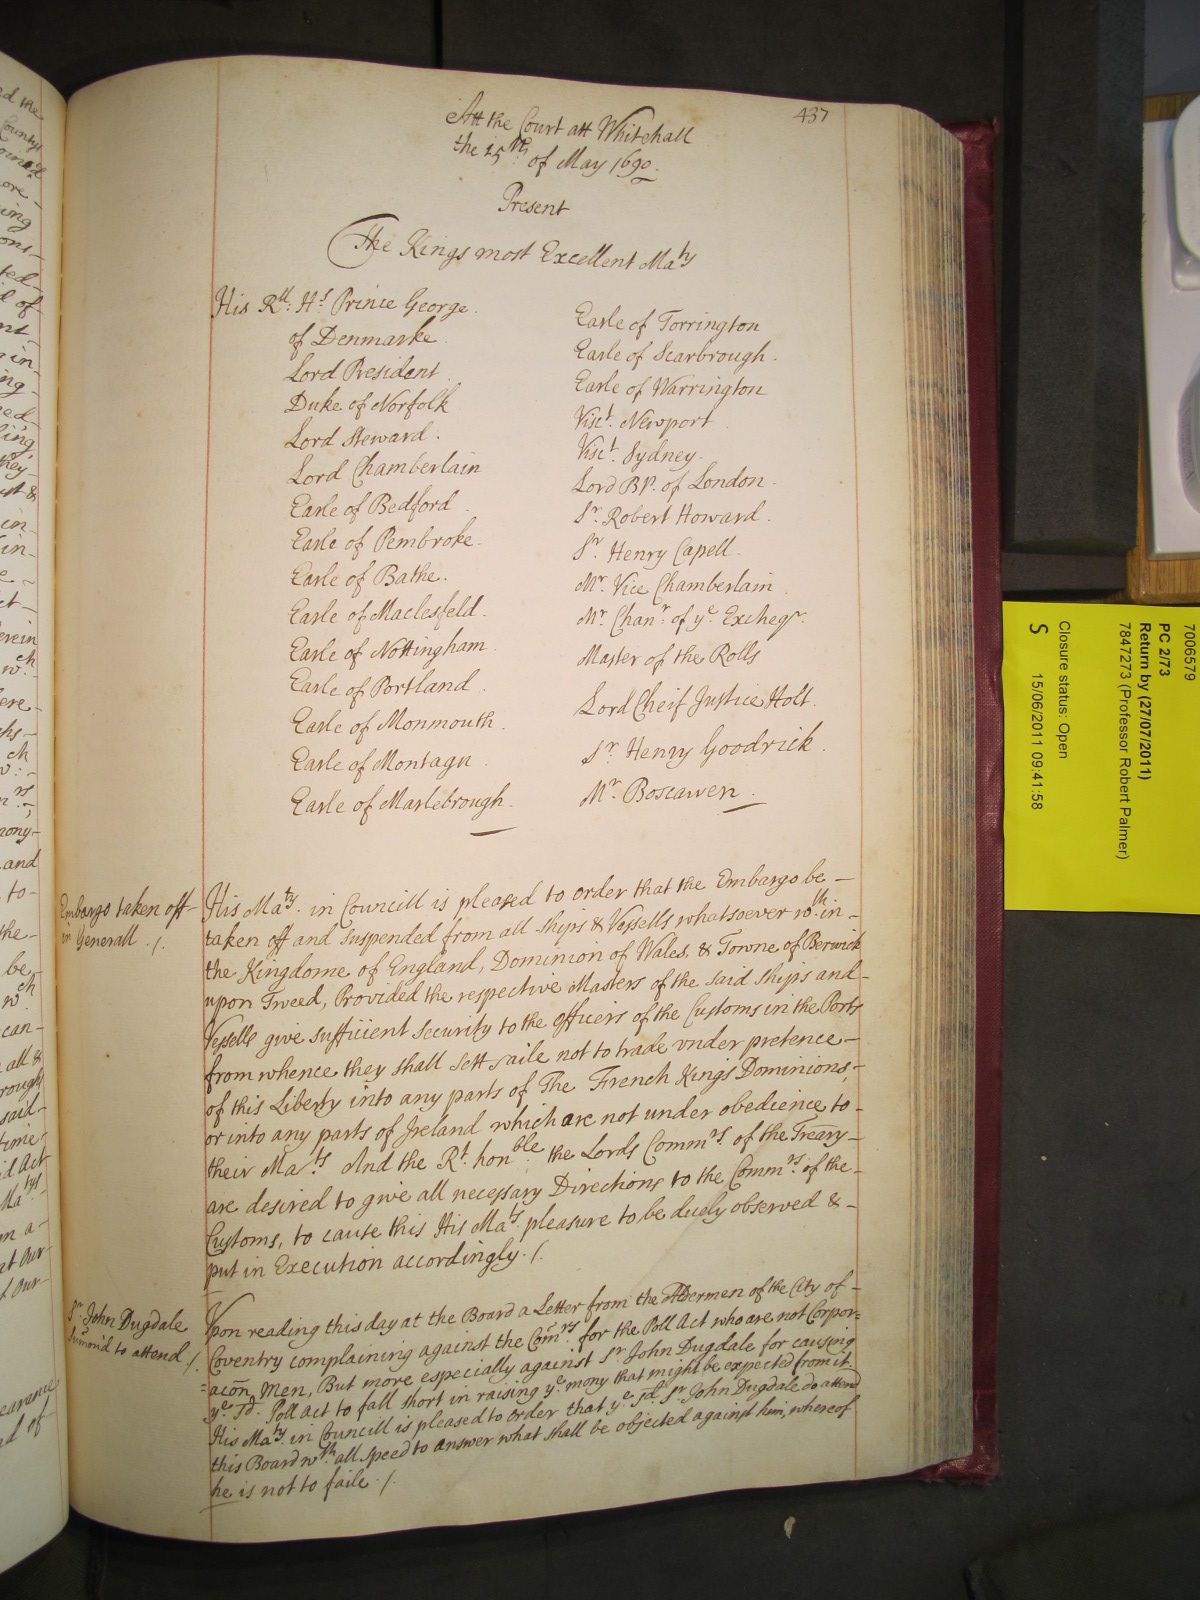 437
Att the Court att Whitehall
the 25th of May 1690.
Present
The Kings most Excellent Maty
His Rll: Hs Prince George
of Denmarke
Lord President
Duke of Norfolk
Lord Steward.
Lord Chamberlain
Earle of Bedford
Earle of Pembroke.
Earle of Bathe.
Earle of Maclesfeld.
Earle of Nottingham
Earle of Portland
Earle of Monmouth.
Earle of Montagu
Earle of Marlebrough.
Earle of Torrington
Earle of Scarbrough.
Earle of Warrington
Visct. Newport
Visct. Sydney.
Lord BP. of London.
Sr. Robert Howard.
Sr. Henry Capell.
Mr. Vice Chamberlain
Mr. Chanr. of ye Excheqr.
Master of the Rolls
Lord Cheif Justice Holt.
Sr. Henry Goodrick.
Mr. Boscawen
Embargo taken off
in Generall ./.
His Maty. in Councill is pleased to order that the Embargo be
taken off and suspended from all ships & Vessells whatsoever wth.in
the Kingdome of England, Dominion of Wales, & Towne of Berwick
upon Tweed, Provided the respective Masters of the said ships and
Vessells give sufficient security to the officers of the Customs in the Ports
from whence they shall sett saile not to trade vnder pretence
of this Liberty into any parts of The French Kings Dominions,
or into any parts of Ireland which are not under obedience to
their Mats. And the Rt. honble. the Lords Commrs. of the Treãry
are desired to give all necessary Directions to the Commrs. of the
Customs, to cause this His Mats. pleasure to be duely observed &
put in Execution accordingly ./.
Sr. John Dugdale
sum̃on'd to attend ./.
Vpon reading this day at the Board a Letter from the Aldermen of the City of
Coventry complaining against the Com̃rs. for the Poll Act who are not Corpor=
=acõn Men, But more especially against Sr John Dugdale for causing
ye. sd. Poll Act to fall short in raising ye. mony that might be expected from it.
His Maty. in Councill is pleased to order that ye. sd. Sr John Dugdale do attend
this Board wth. all speed to answer what shall be objected against him, whereof
he is not to faile ./.
7006579
PC 2/73
Return by (27/07/2011)
7847273 (Professor Robert Palmer)
Closure status: Open
S 15/06/2011 09:41:58